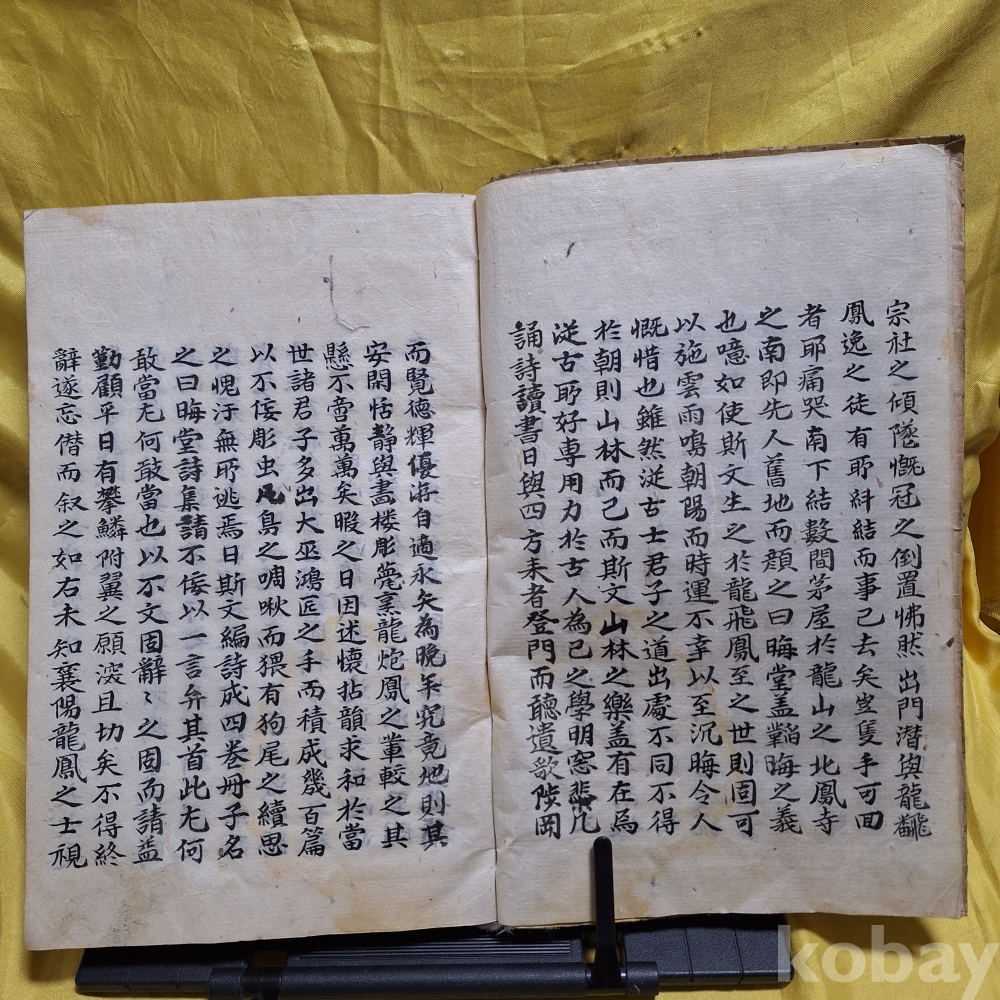 宗社之傾隧慨冠之倒置怫然出門潜與龍翻
鳳逸之徒有所糾結而事已去矣豈隻手可回
者耶痛哭南下結數間茅屋於龍山之北鳳寺
之南即先人舊地而顔之曰晦堂盖韜晦之義
也噫如使斯文生之於龍飛鳳至之世則固可
以施雲雨鳴朝陽而時運不幸以至沉晦令人
慨惜也雖然従古士君子之道出處不同不得
於朝則山林而已而斯文山林之樂盖有在焉
従古所好専用力於古人為已之學明窓棐几
誦詩讀書日與四方来者登門而聽遺歌陟岡
而覽德輝優游自適永矢為晩年究竟地則其
安閑恬静與畵楼彫甍烹龍炮鳳之軰較之其
懸不啻萬萬矣暇之日因述懷拈韻求和於當
世諸君子多出大巫鴻匠之手而積成幾百篇
以不佞彫虫凡鳥之啁啾而猥有狗尾之續思
之愧汗無所逃焉日斯文編詩成四巻冊子名
之曰晦堂詩集請不佞以一言弁其首此尤何
敢當尤何敢當也以不文固辭〻之固而請益
勤顧平日有攀鱗附翼之願深且切矣不得終
辭遂忘僣而叙之如右未知襄陽龍鳳之士視
kobay